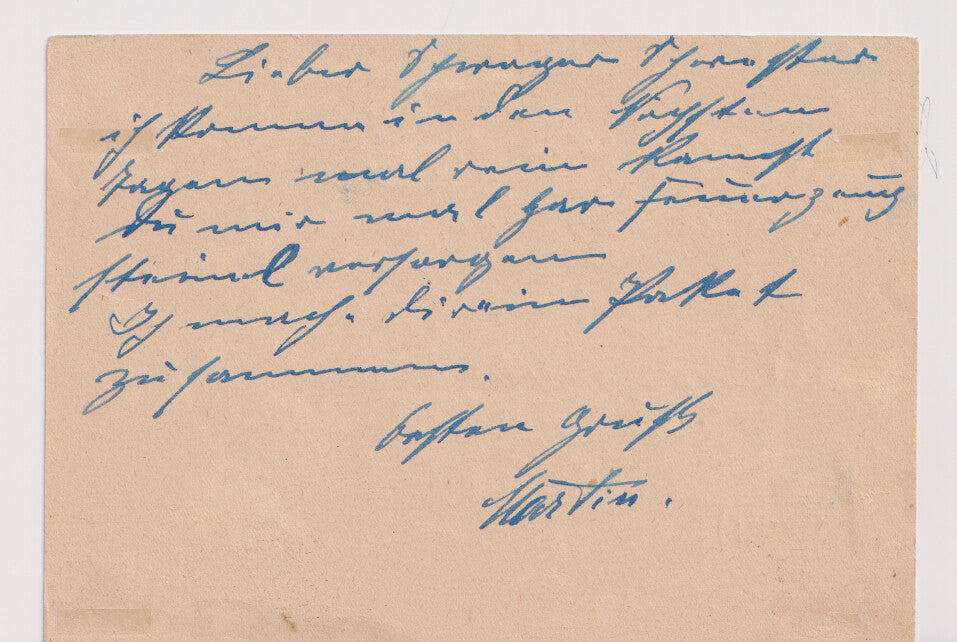 Lieber Schwager Schwester
ich komme in den Nächsten
Tagen mal rein kannst
Du mir mal par Feuerzeug
steine versorgen
Ich mach dir ein Paket
zusammen.
besten Gruß
Martin.